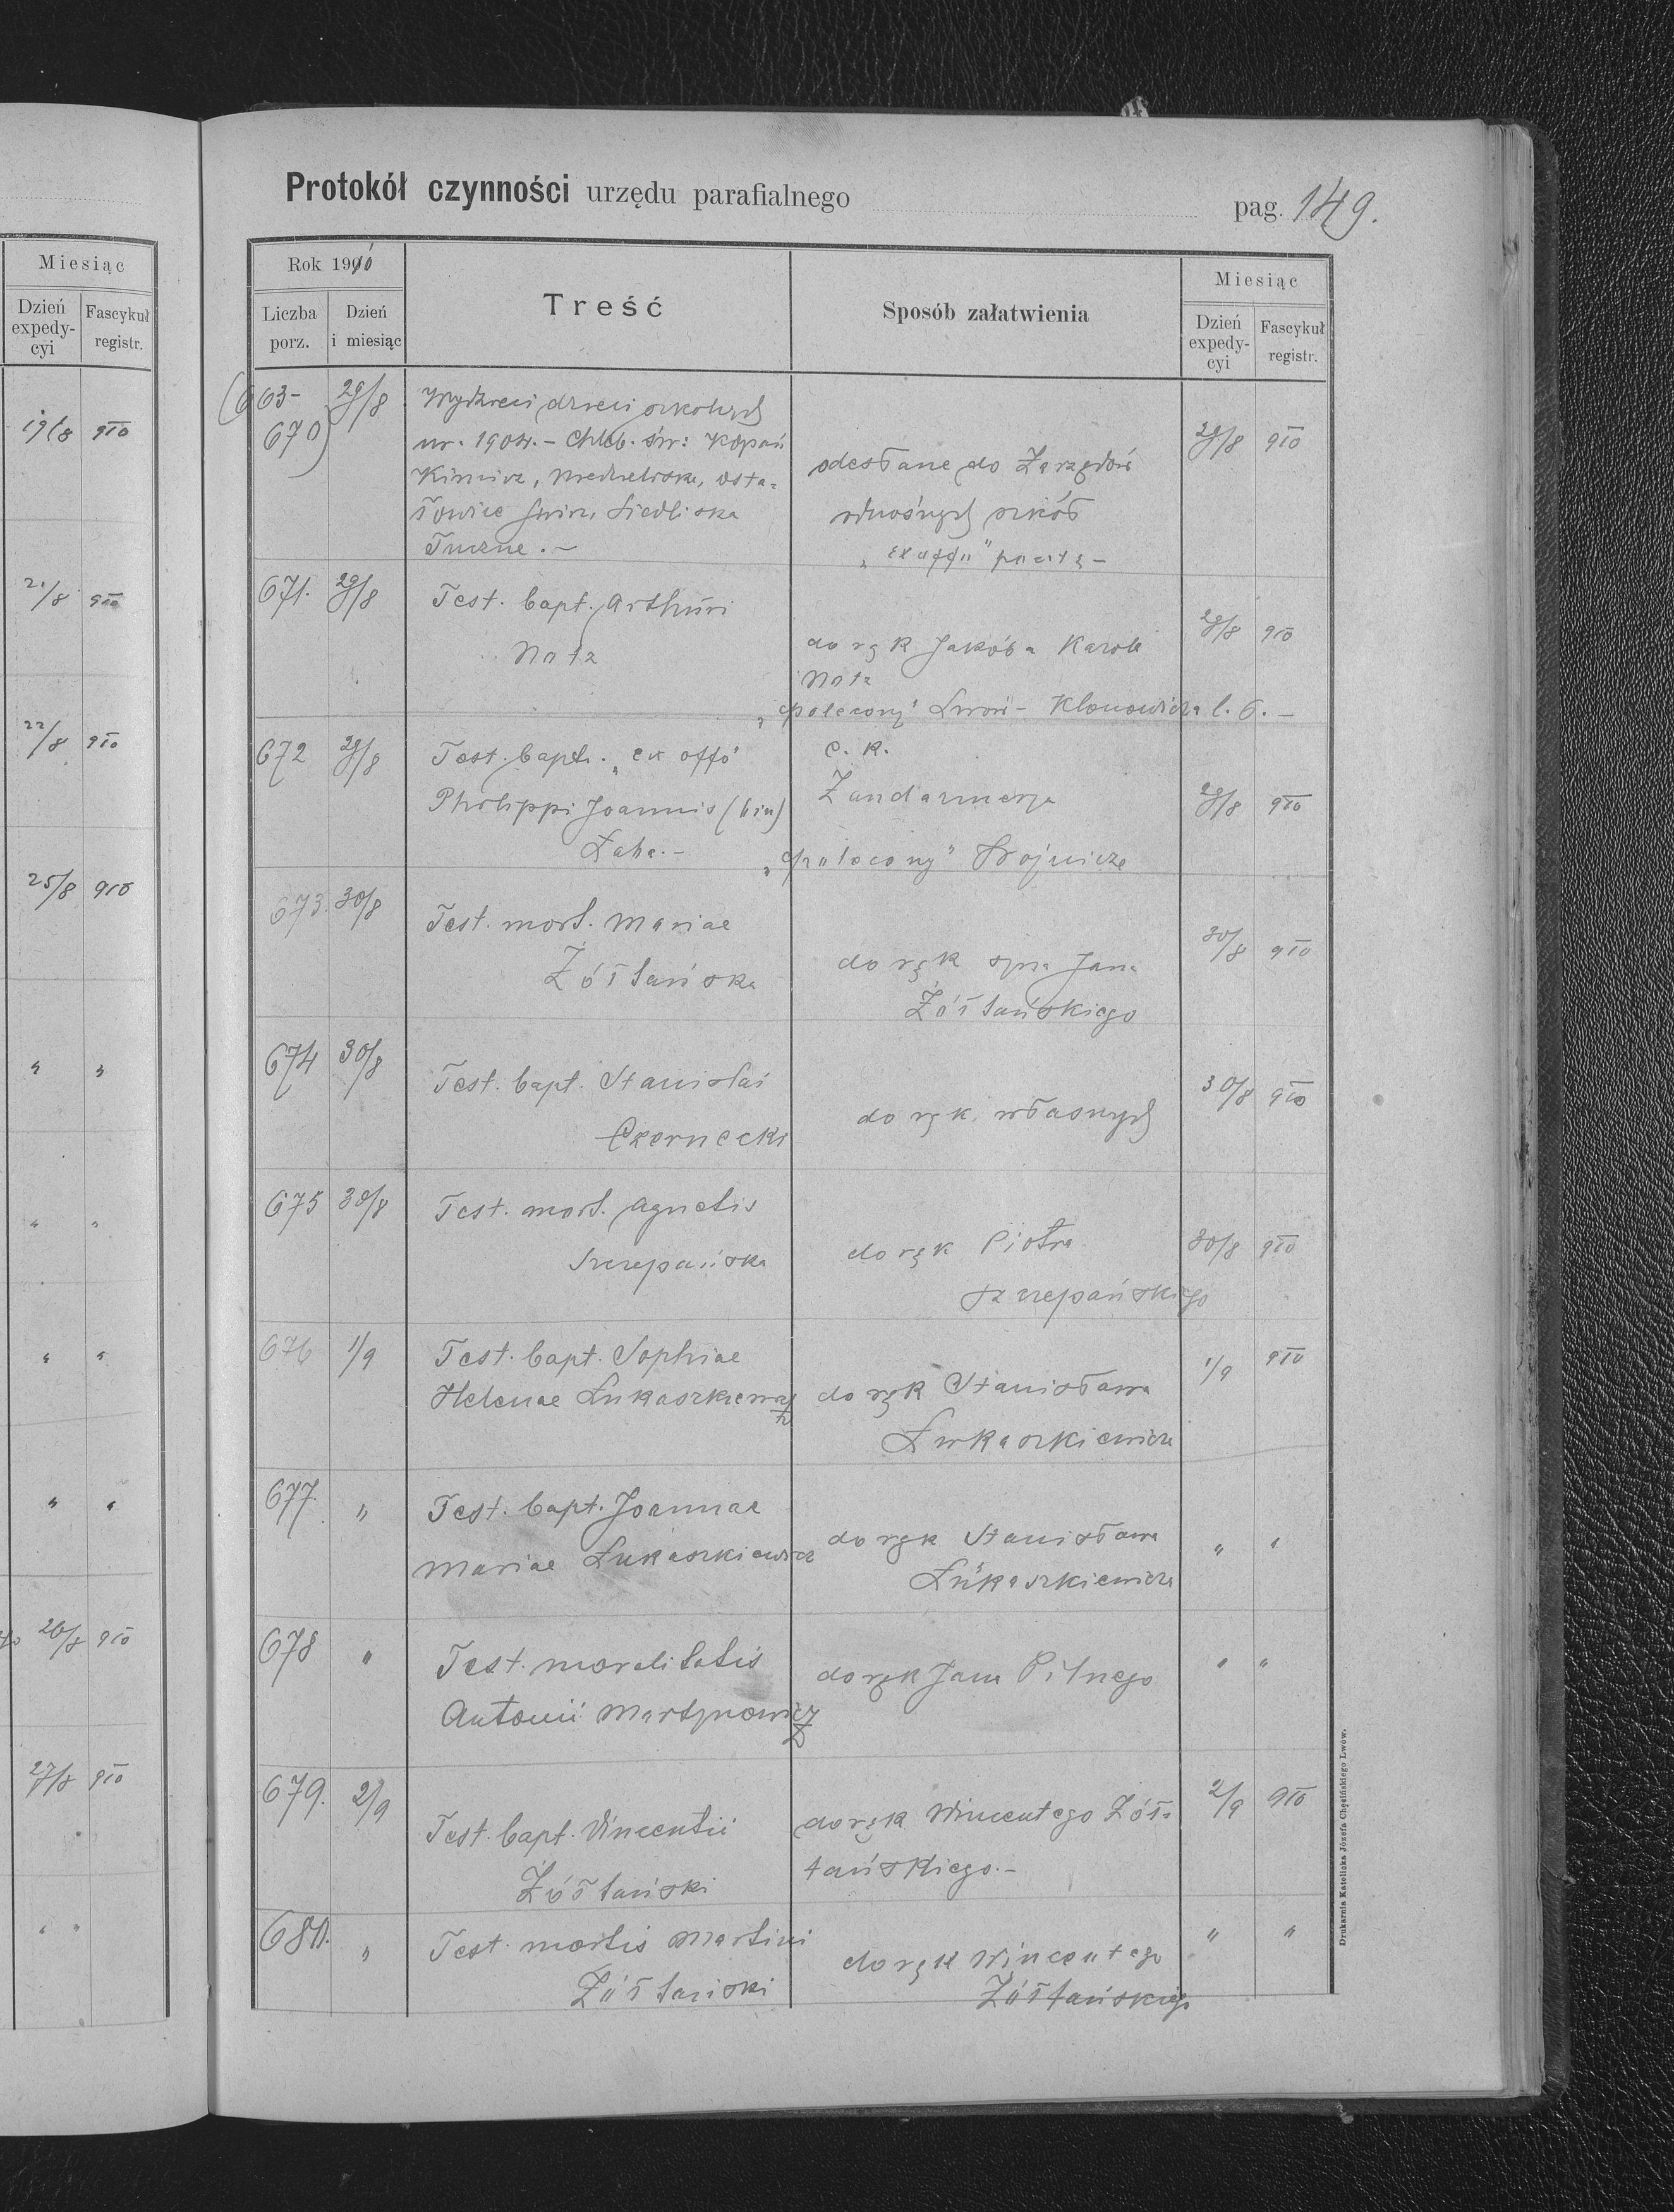 Miesiąc
Dzień expedycyi
Fascykuł registr.
19/8 910
21/8 910
22/8 910
25/8 910
" "
" "
" "
" "
26/8 910
27/8 910
" "
Protokół czynności urzędu parafialnego
pag. 149.
Rok 1910
Liczba porz.
Dzień i miesiąc
Treść
Sposób załatwienia
Miesiąc
Dzień expedycyi
Fascykuł registr.
(663-
670)
29/8
dzieci szkolnych
ur. 1904. - Chleb. św: Kopań
Kimirz, Niedzieliska, Osta=
łowice Świrz, Siedliska
Tuczne. -
odesłane do Zarządów
odnośnych szkół
„ex offo" pocztą -
29/8 910
671. 29/8
Test. bapt. Arthuri
Notz
do rąk Jakóba Karola
Notz
„polecony" Lwów - Klonowicza l. 6. -
29/8 910
672 29/8
Test. bapt. „ex offo"
Philippi Joannis (bin)
Łaba. -
c. k.
Żandarmerja
„polecony" Wojnicze
29/8 910
673. 30/8
Test. mort. Mariae
Żółtańska
do rąk syna Jana
Żółtańskiego
30/8 910
674 30/8
Test. bapt. Stanislai
Czernecki
do rąk własnych
30/8 910
675 30/8
Test. mort. Agnetis
Szczepańska
do rąk Piotra
Szczepańskiego
30/8 910
676 1/9
Test. bapt. Sophiae
Helenae Łukaszkiewicz
do rąk Stanisława
Łukaszkiewicza
1/9 910
677. "
Test. bapt. Joannae
Mariae Łukaszkiewicz
do rąk Stanisława
Łukaszkiewicza
" "
678 "
Test. moralitatis
Antonii Martynowicz
do rąk Jana Pitnego
" "
679. 2/9
Test. bapt. Vincentii
Żółtański
do rąk Wincentego Żół=
tańskiego. -
2/9 910
680. "
Test. mortis Martini
Żółtański
do rąk Wincentego
Żółtańskiego
" "
Drukarnia Katolicka Józefa Chęcińskiego Lwów.